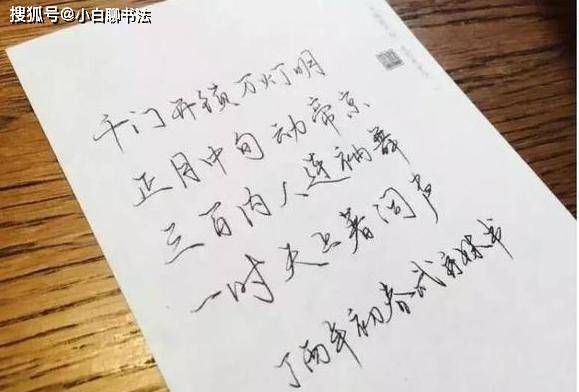 搜狐号@小白聊书法
千门开锁万灯明
正月中旬动帝京
三百内人連袖舞
一时天上著词声
丁酉年初春武书